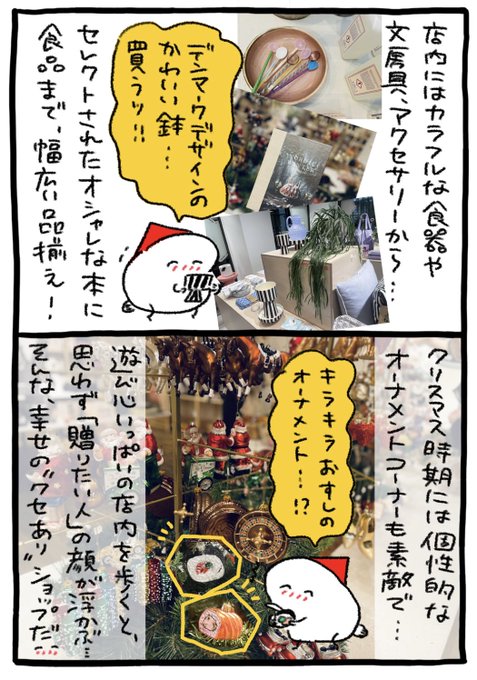 店内にはカラフルな食器や
文房具、アクセサリーから…
デンマークデザインの
かわいい鉢…
買うッ!!
セレクトされたオシャレな本に
食品まで、幅広い品揃え!
クリスマス時期には個性的な
オーナメントコーナーも素敵で…
キラキラおすしの
オーナメント…!?
遊び心いっぱいの店内を歩くと、
思わず「贈りたい人」の顔が浮かぶ…
そんな、幸せの"クセあり"ショップだ…